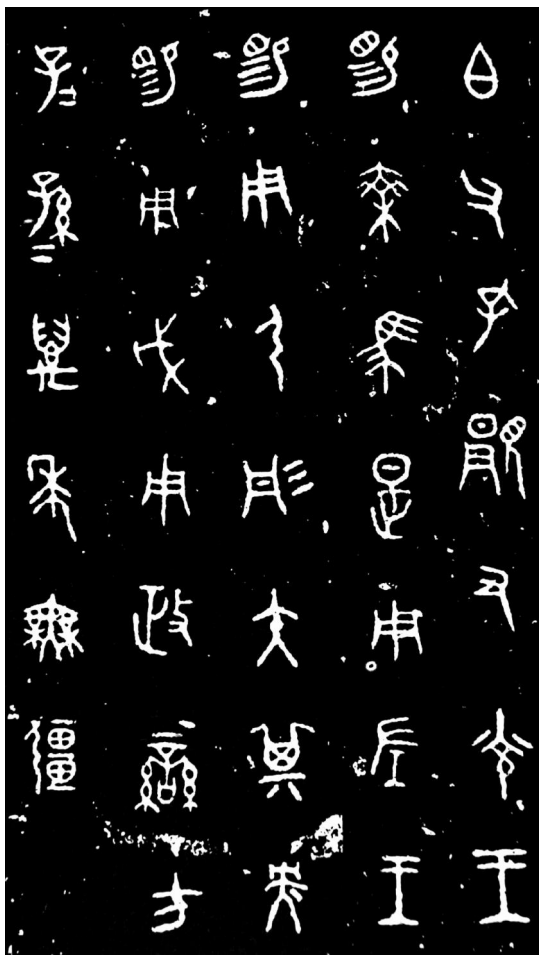 白父孔覭又光王
睗乘馬是用左王
睗用弓彤矢其央
睗用戉用政䜌方
子=孫=萬年無疆